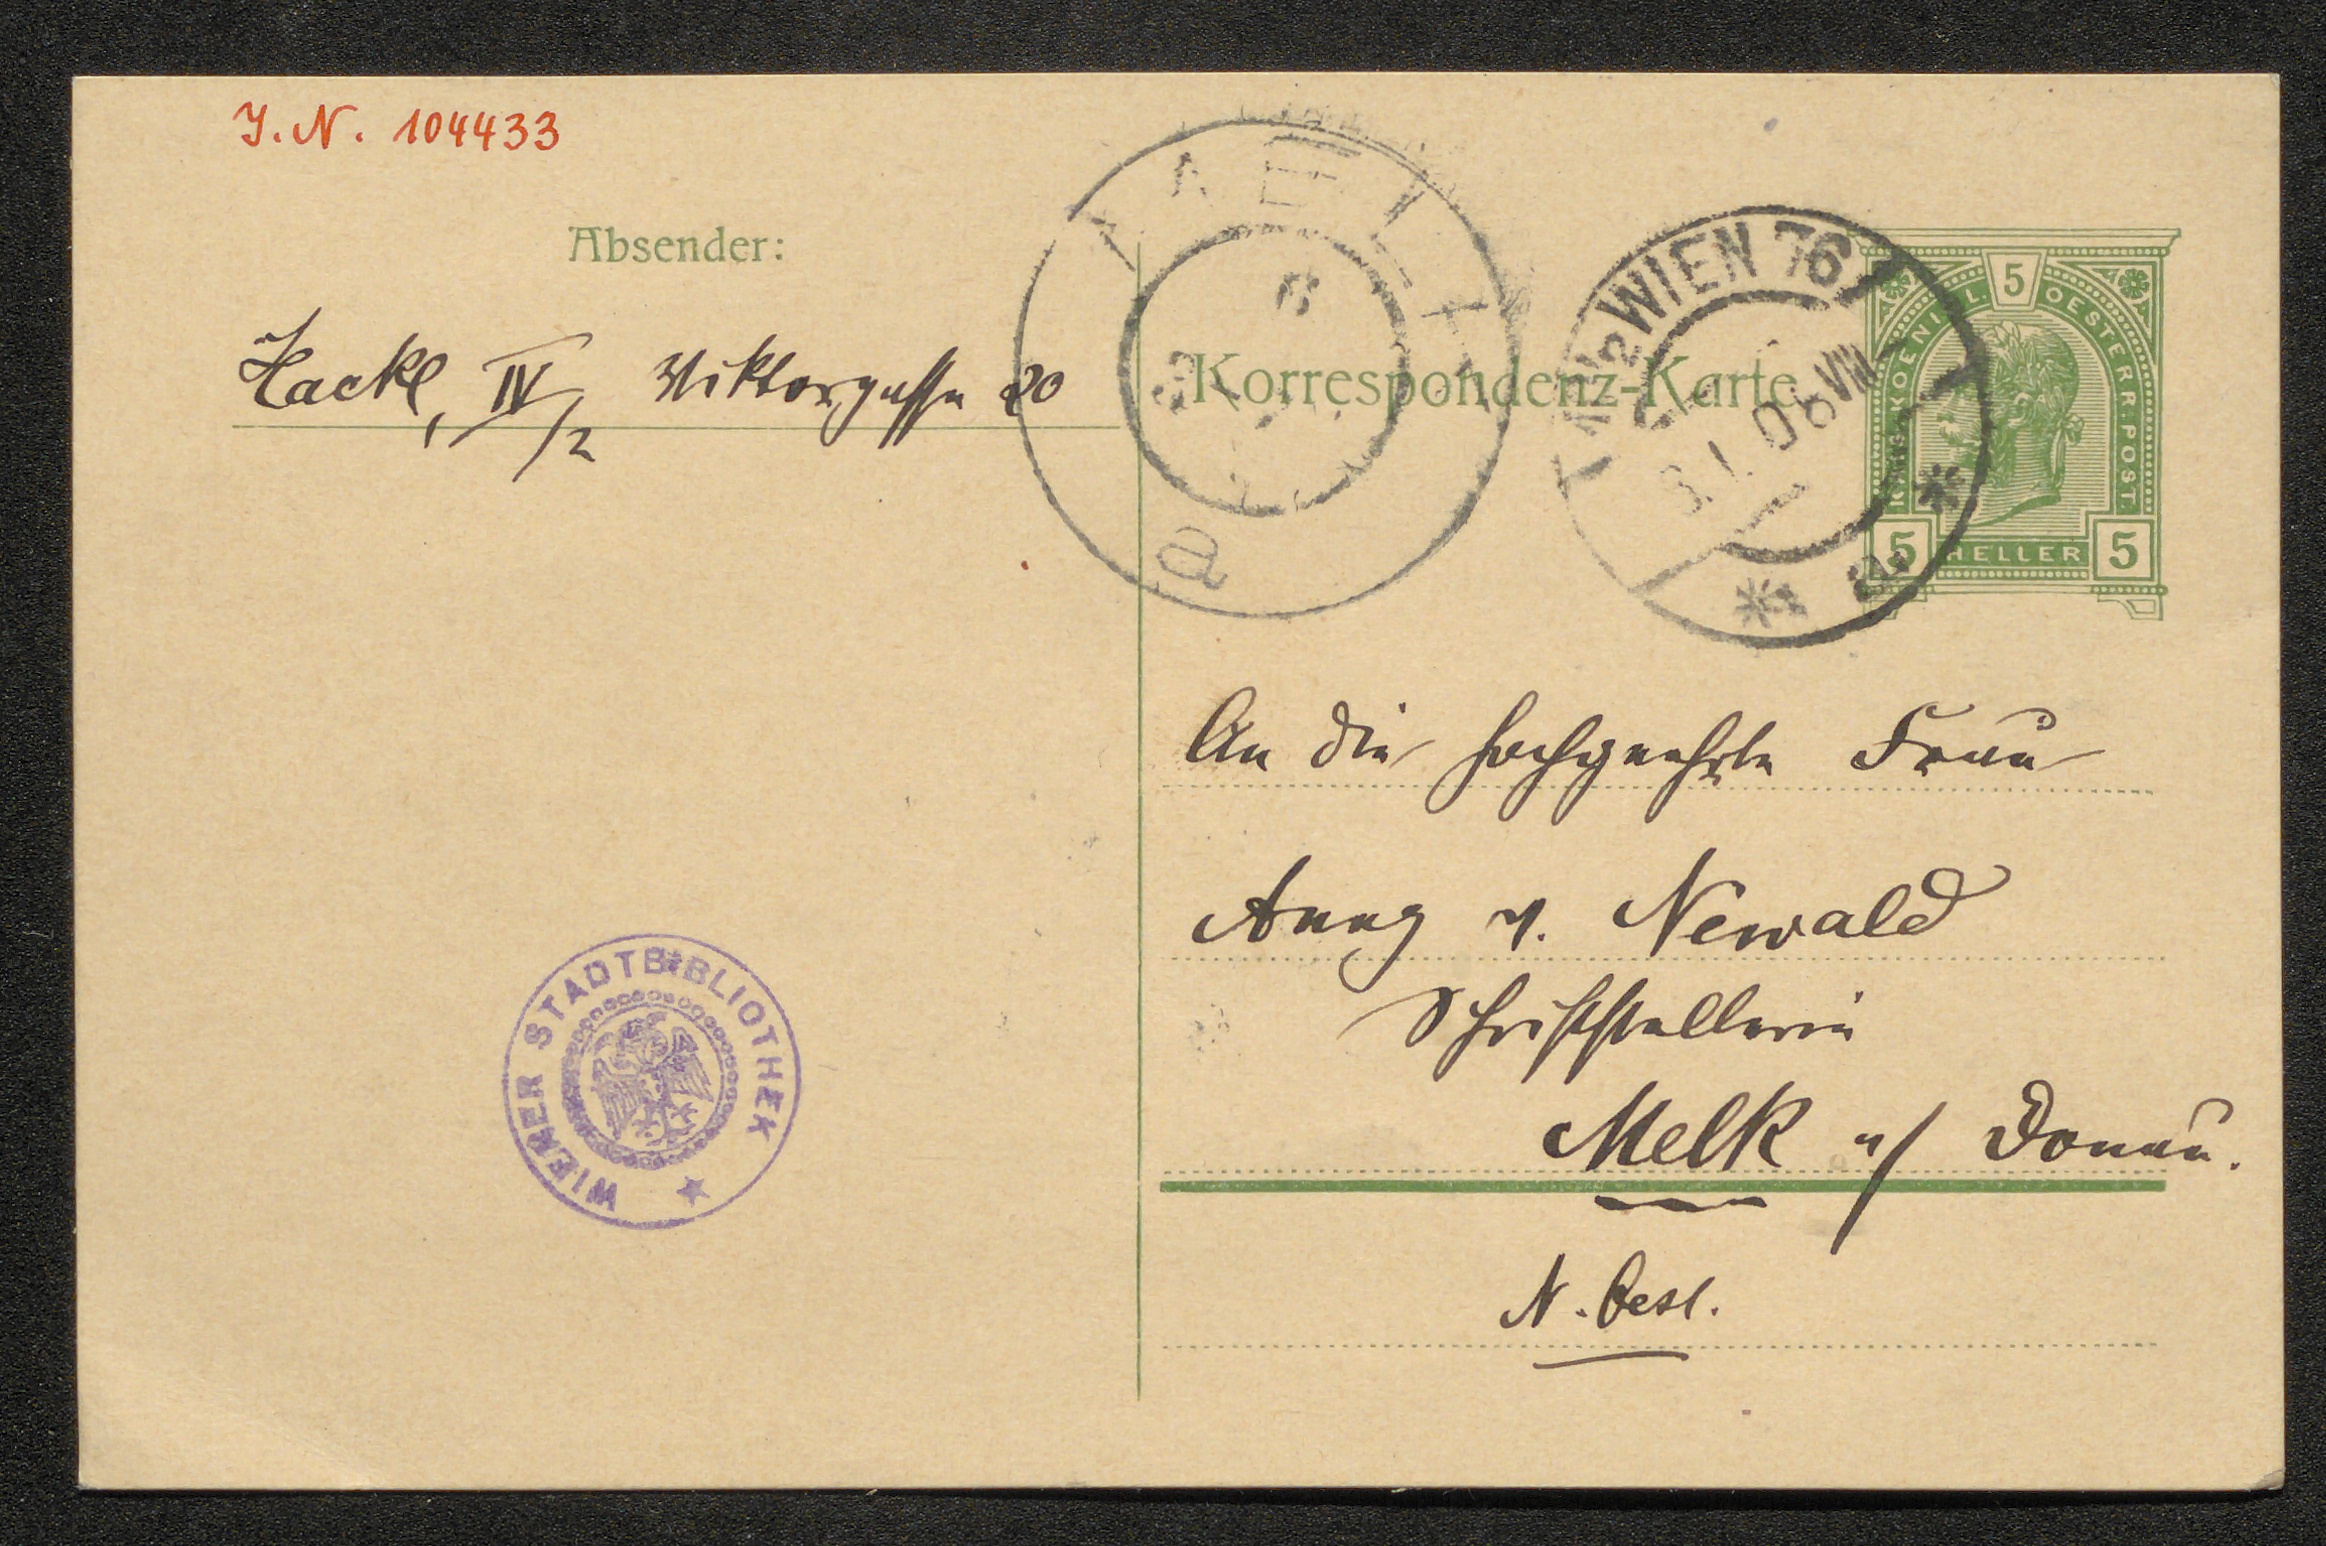 J. N. 104433
Absender:
Hackl, IV/2 Viktorgasse 20
MELK
a
Korrespondenz-Karte
WIEN 76
3. I. 06 VIII
* a *
KAIS. KOENIGL. 5 OESTERR. POST.
5 HELLER 5
An die hochgeehrte Frau
v. Newald
Schriftstellerin
Melk a/ Donau.
N. Oest.
WIENER STADTBIBLIOTHEK